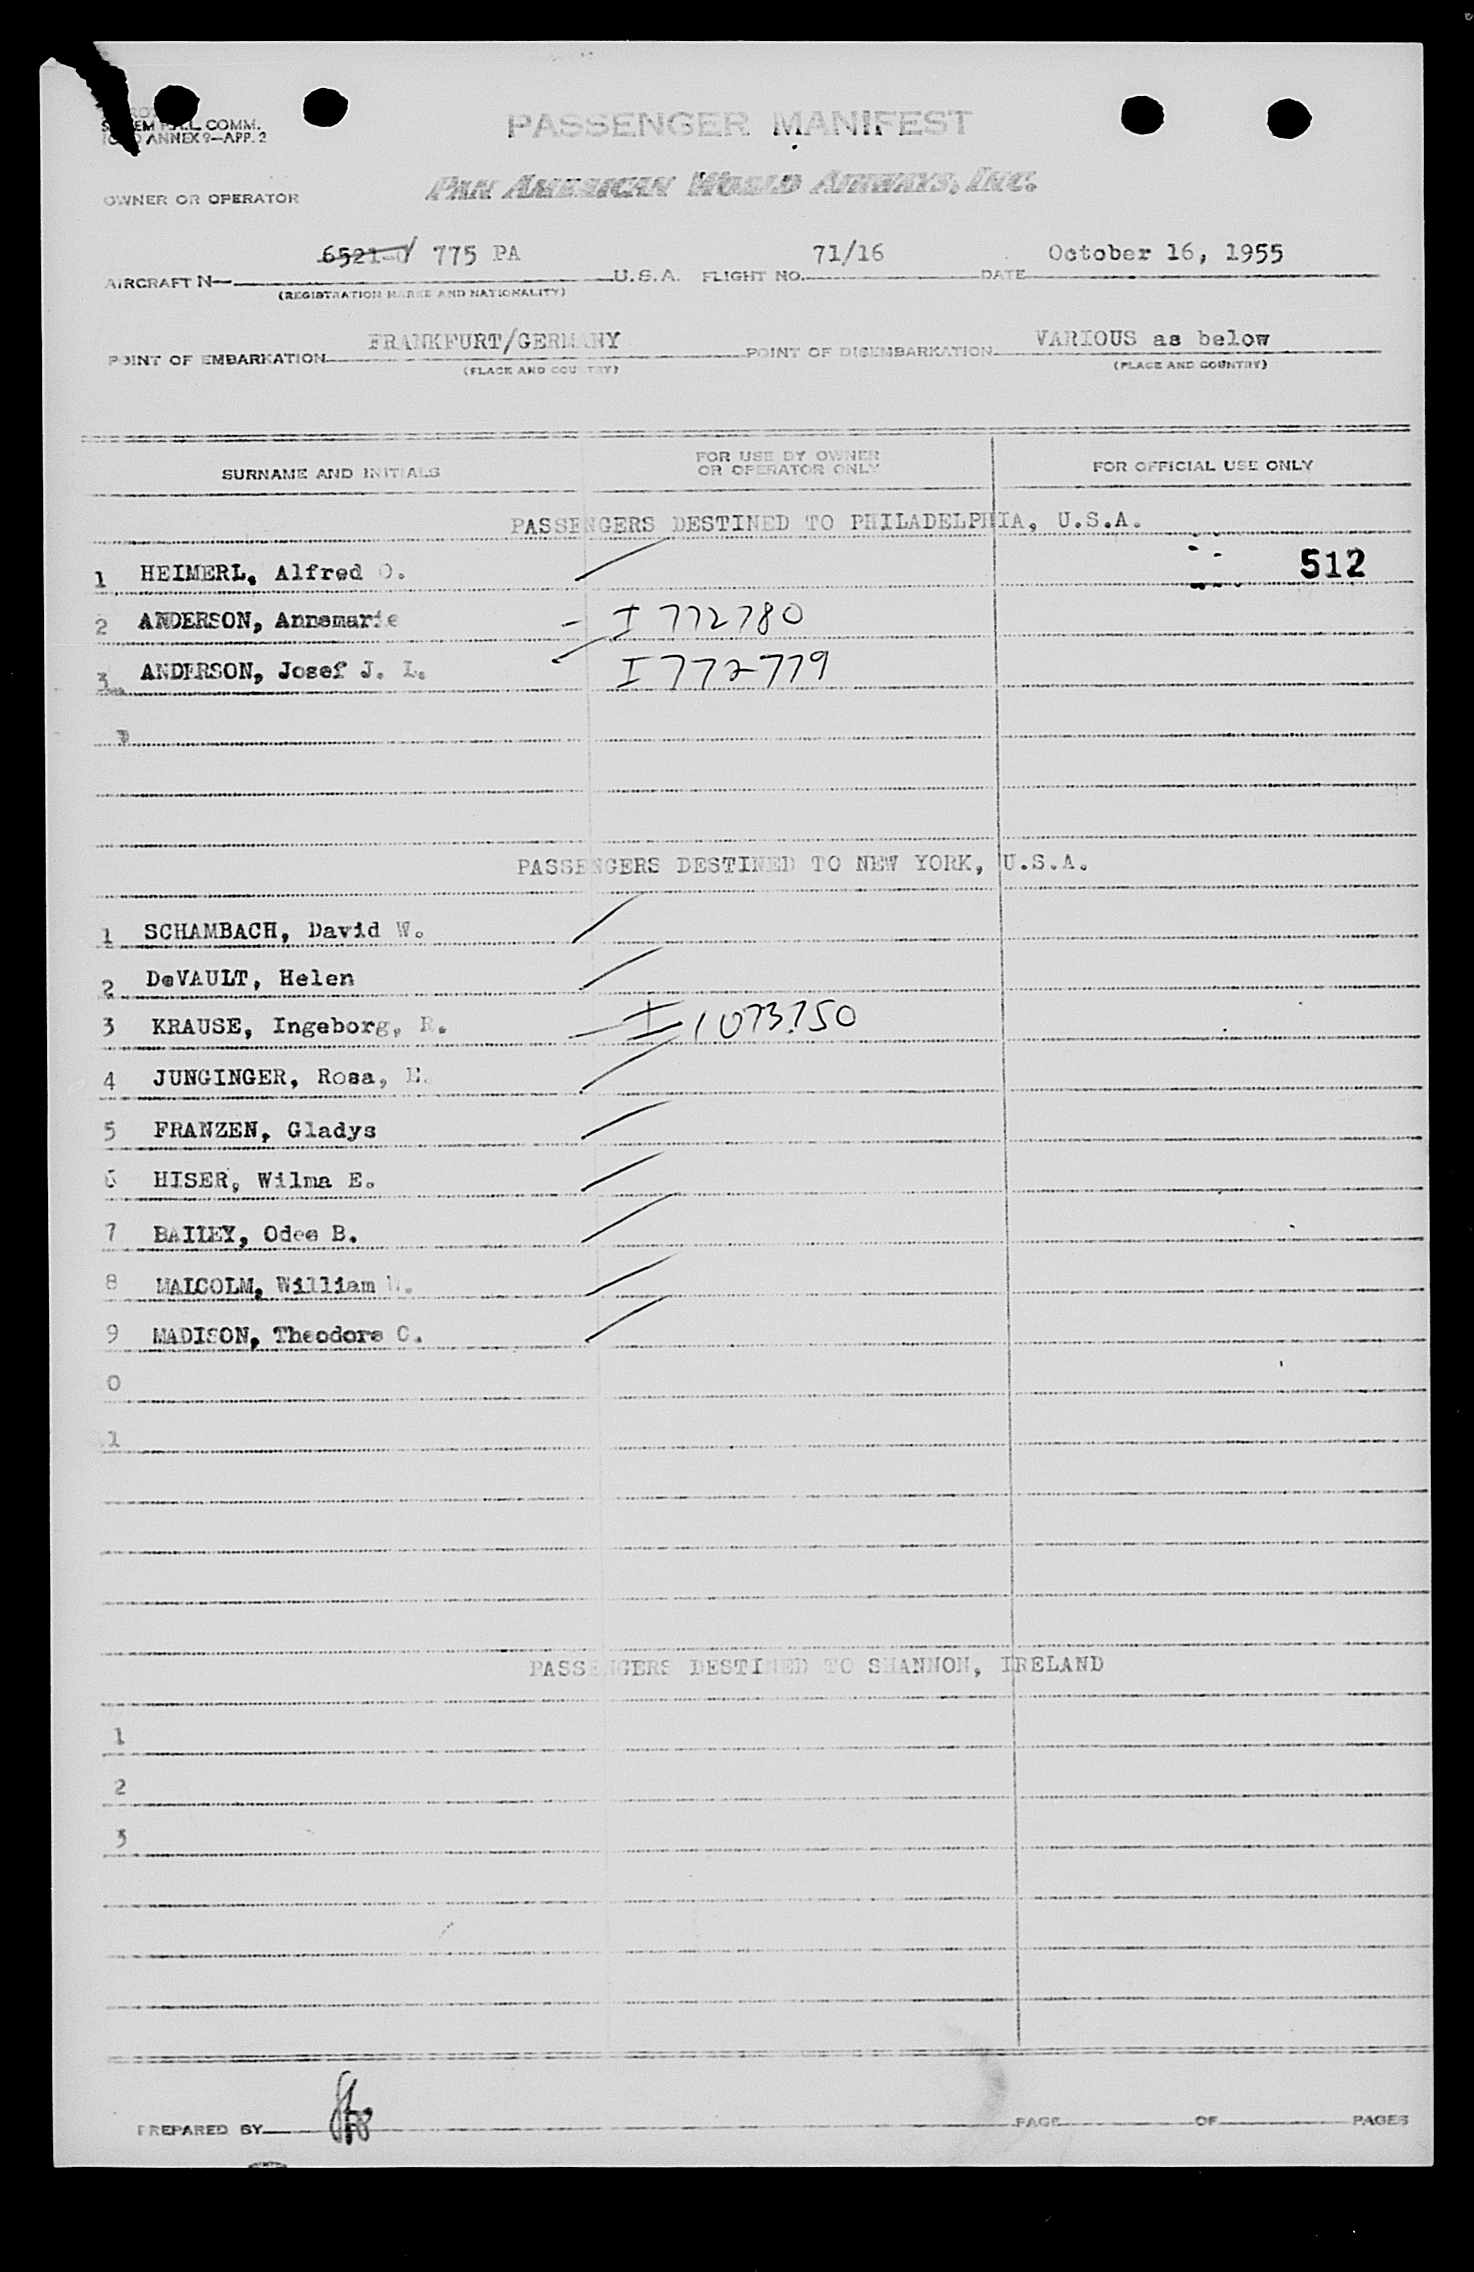 COMM.
ANNEX 9—APP. 2
PASSENGER MANIFEST
PAN AMERICAN WORLD AIRWAYS, INC.
OWNER OR OPERATOR
775 PA 71/16 October 16, 1955
AIRCRAFT N— U.S.A. FLIGHT NO. DATE
(REGISTRATION MARKS AND NATIONALITY)
FRANKFURT/GERMANY VARIOUS as below
POINT OF EMBARKATION POINT OF DISEMBARKATION
(PLACE AND COUNTRY) (PLACE AND COUNTRY)
SURNAME AND INITIALS FOR USE BY OWNER OR OPERATOR ONLY FOR OFFICIAL USE ONLY
PASSENGERS DESTINED TO PHILADELPHIA, U.S.A.
1 HEIMERL, Alfred O. 512
2 ANDERSON, Annemarie I 772780
3 ANDERSON, Josef J. L. I 772779
PASSENGERS DESTINED TO NEW YORK, U.S.A.
1 SCHAMBACH, David W.
2 DeVAULT, Helen
3 KRAUSE, Ingeborg, R. I 1073750
4 JUNGINGER, Rosa, E.
5 FRANZEN, Gladys
6 HISER, Wilma E.
7 BAILEY, Odee B.
8 MALCOLM, William W.
9 MADISON, Theodore C.
0
1
PASSENGERS DESTINED TO SHANNON, IRELAND
1
2
3
PREPARED BY PAGE OF PAGES